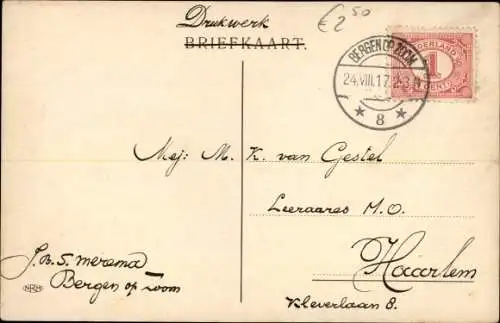 Drukwerk
€ 2 50
BRIEFKAART.
BERGEN OP ZOOM
24.VIII.17. 2-3 N
* 8 *
NEDERLAND
1
CENT
Mej: M. K. van Gestel
Leerares M.O.
Haarlem
Kleverlaan 8.
J.B.S. Merema
Bergen op Zoom